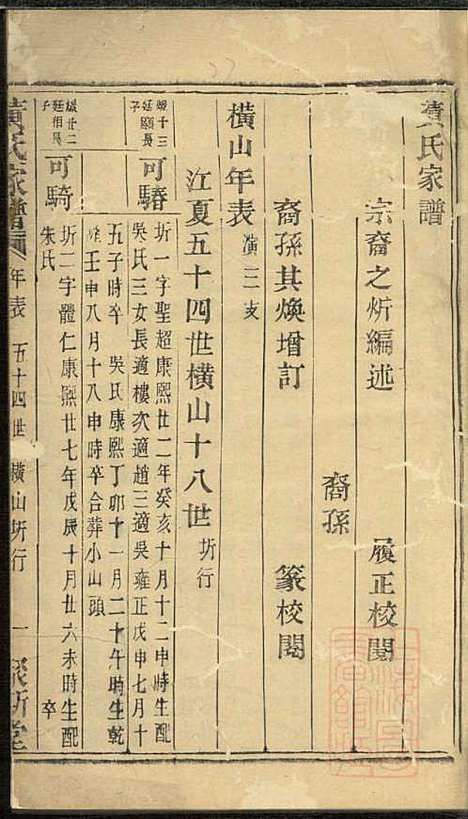 黃氏家譜
宗裔之炘編述 履正校閱
裔孫
裔孫其煥增訂 篆校閱
橫山年表 演二支
江夏五十四世橫山十八世 圻行
煥十三
廷顯長
子
可騎
圻一字聖超康熙廿二年癸亥十月十二申時生配
吳氏三女長適樓次適趙三適吳雍正戊申七月十
五子時卒 吳氏康熙丁卯十一月二十午時生乾
隆壬申八月十八申時卒合葬小山頭
廿二
廷相長
子
可騎
圻二字體仁康熙廿七年戊辰十月廿六未時生配
朱氏 卒
黃氏家譜 年表 五十四世 橫山圻行 一 敘斯堂